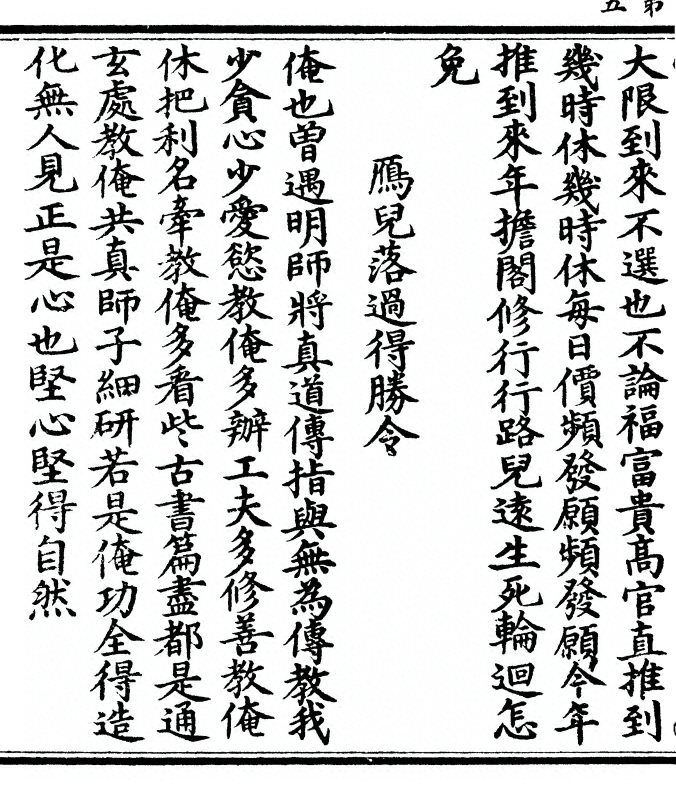 第五
大限到來不選也不論福富貴高官直推到
幾時休幾時休每日價頻發願頻發願今年
推到來年擔閣修行行路兒遠生死輪迴怎
免
鴈兒落過得勝令
俺也曾遇明師將真道傳指與無為傳教我
少貪心少愛慾教俺多辦工夫多修善教俺
休把利名牽教俺多看些古書篇盡都是通
玄處教俺共真師子細研若是俺功全得造
化無人見正是心也堅心堅得自然